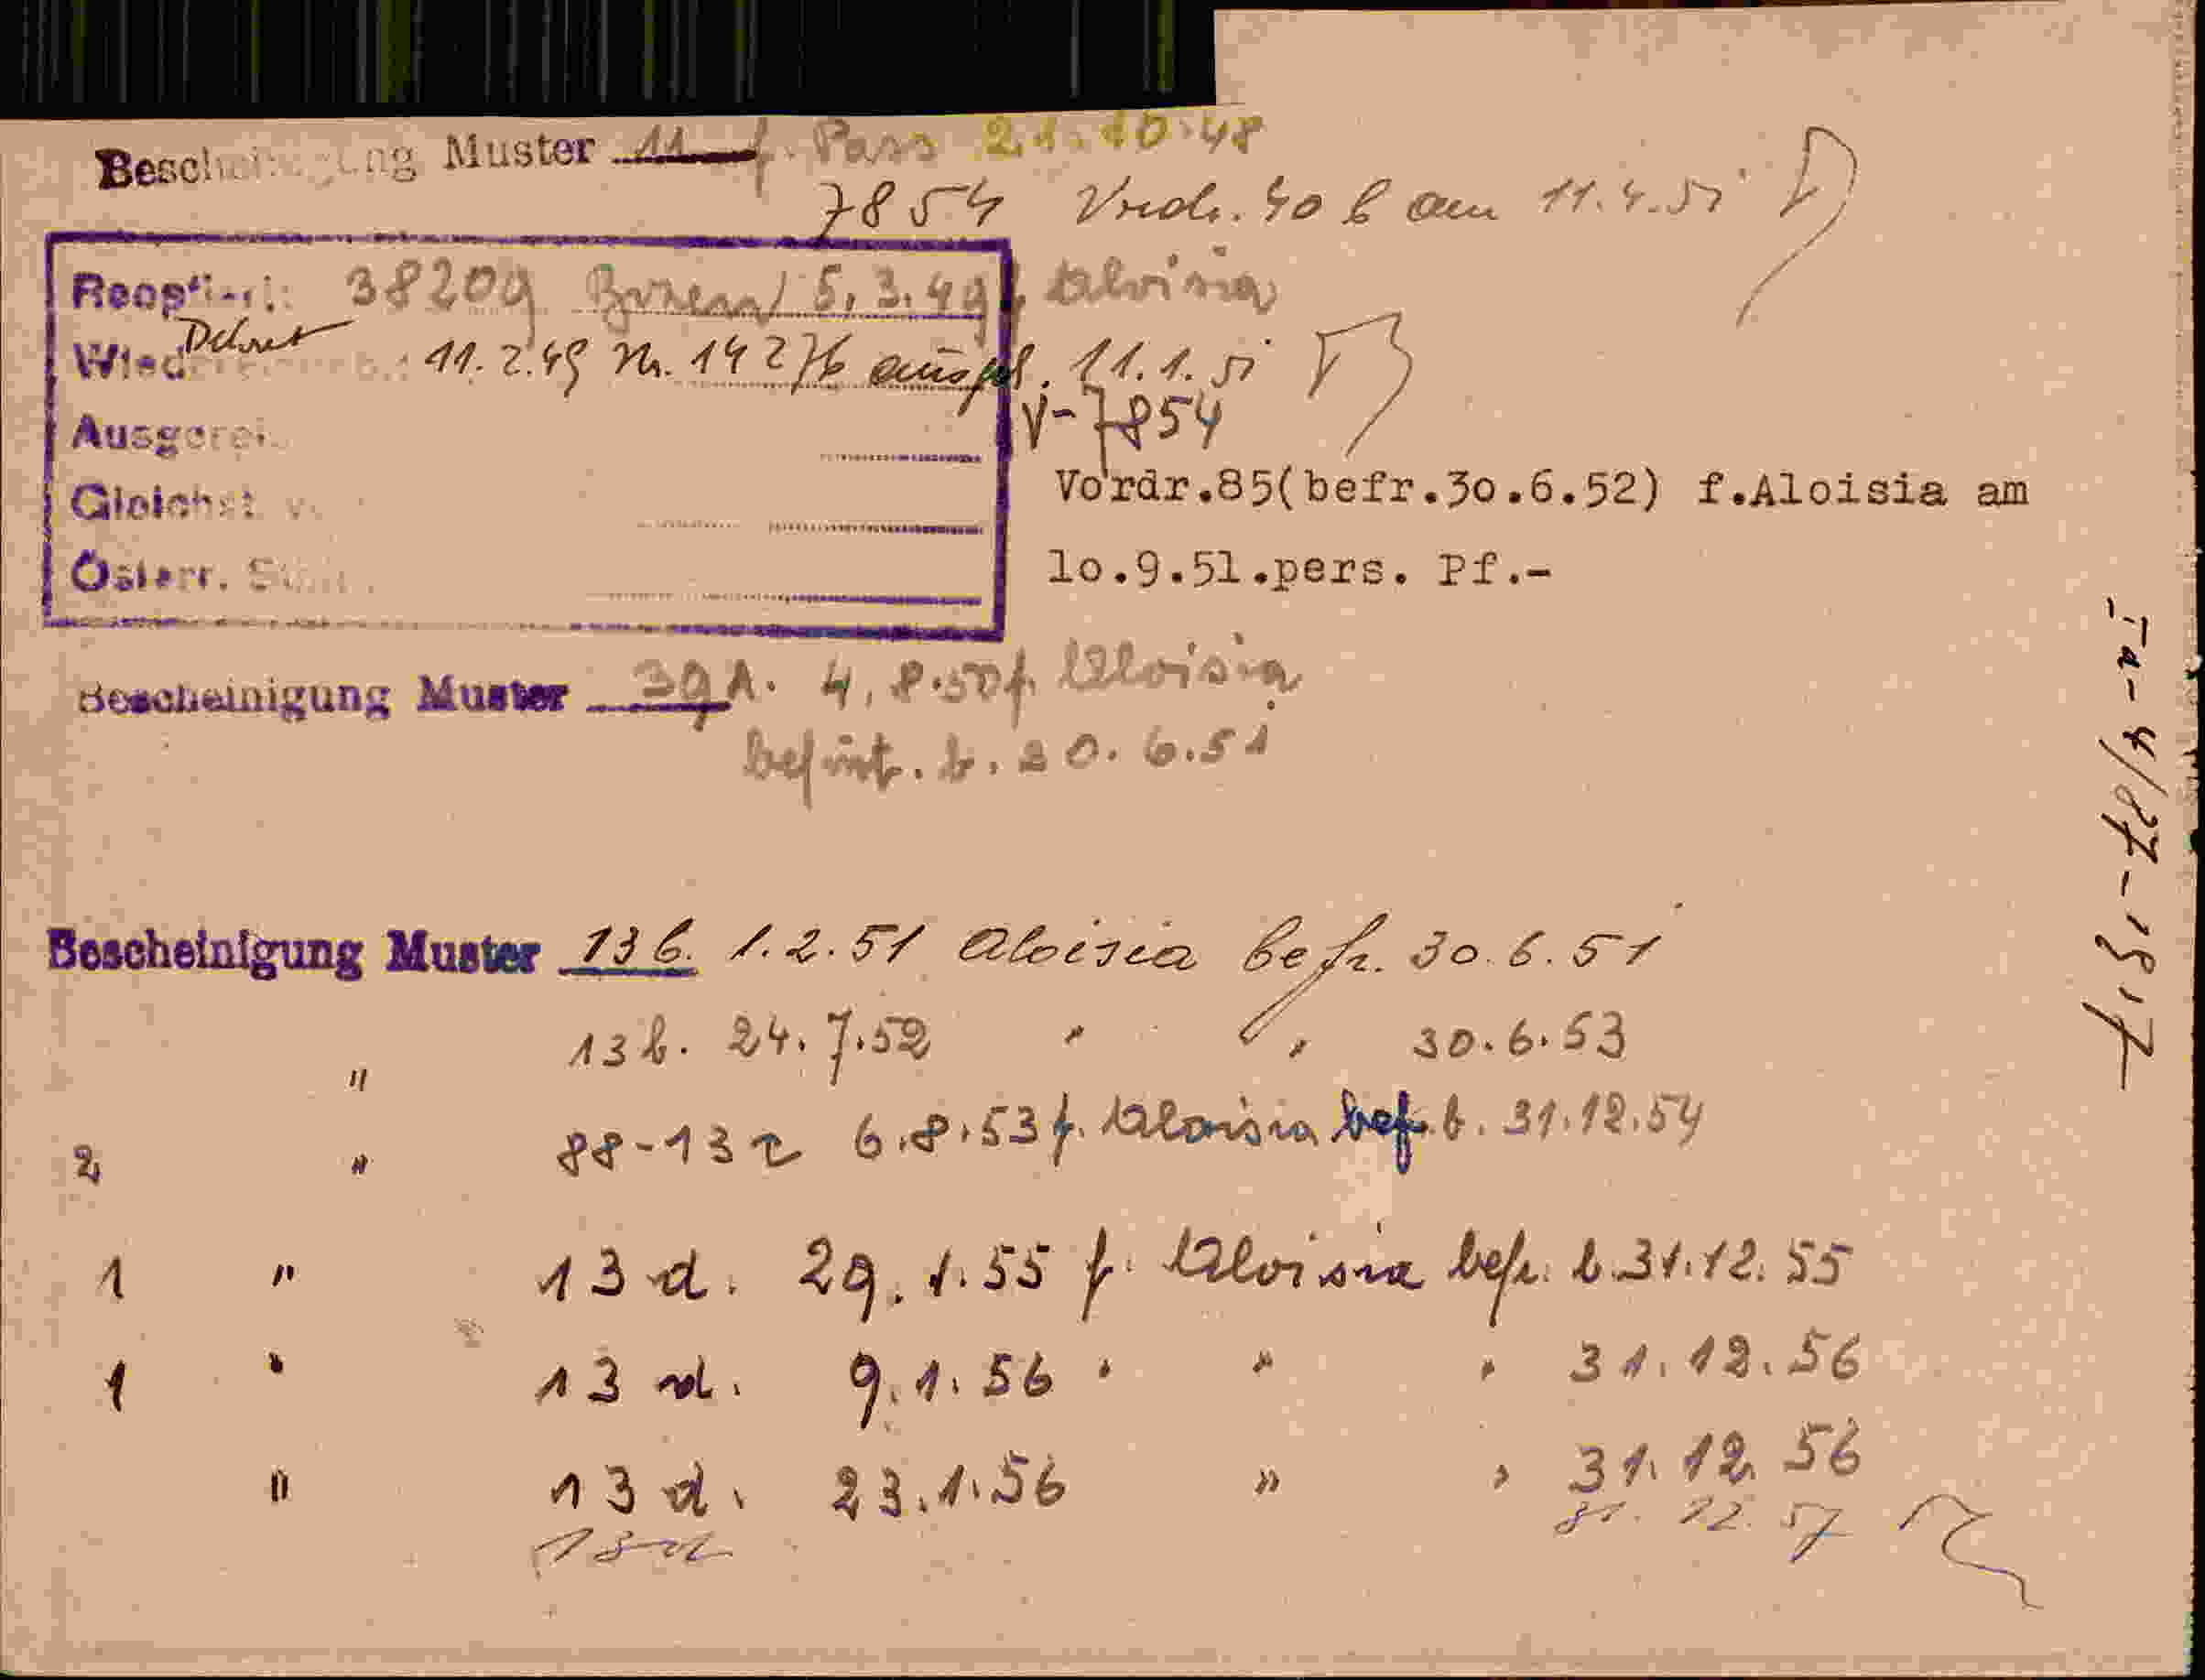 Bescheinigung Muster 11 f. Pass 21.10.48
7854 Vordr. 40 b am 11.4.51
Reoptiert: 38209 Bozen 5.3.49 f. Aloisia
Dekret
11.2.49 Nr. 14276 11.1.51
V-7854
Ausgerei
Gleichst.
Österr.
Vordr.85(befr.3o.6.52) f.Aloisia am
lo.9.51.pers. Pf.-
Bescheinigung Muster 39A. 4.8.50 f. Aloisia
b. 20.6.51
Bescheinigung Muster 13b. 1.2.51 Aloisia befr. 30.6.51
" 13b. 24.7.52 " " 30.6.53
2 " 88-13 6.8.53 f. Aloisia bef. b. 31.12.54
1 " 13 d. 29.1.55 f. Aloisia befr. b. 31.12.55
1 " 13 d. 9.1.56 " " " 31.12.56
" 13 d. 23.1.56 " " 31.12.56
13d 31.12.57